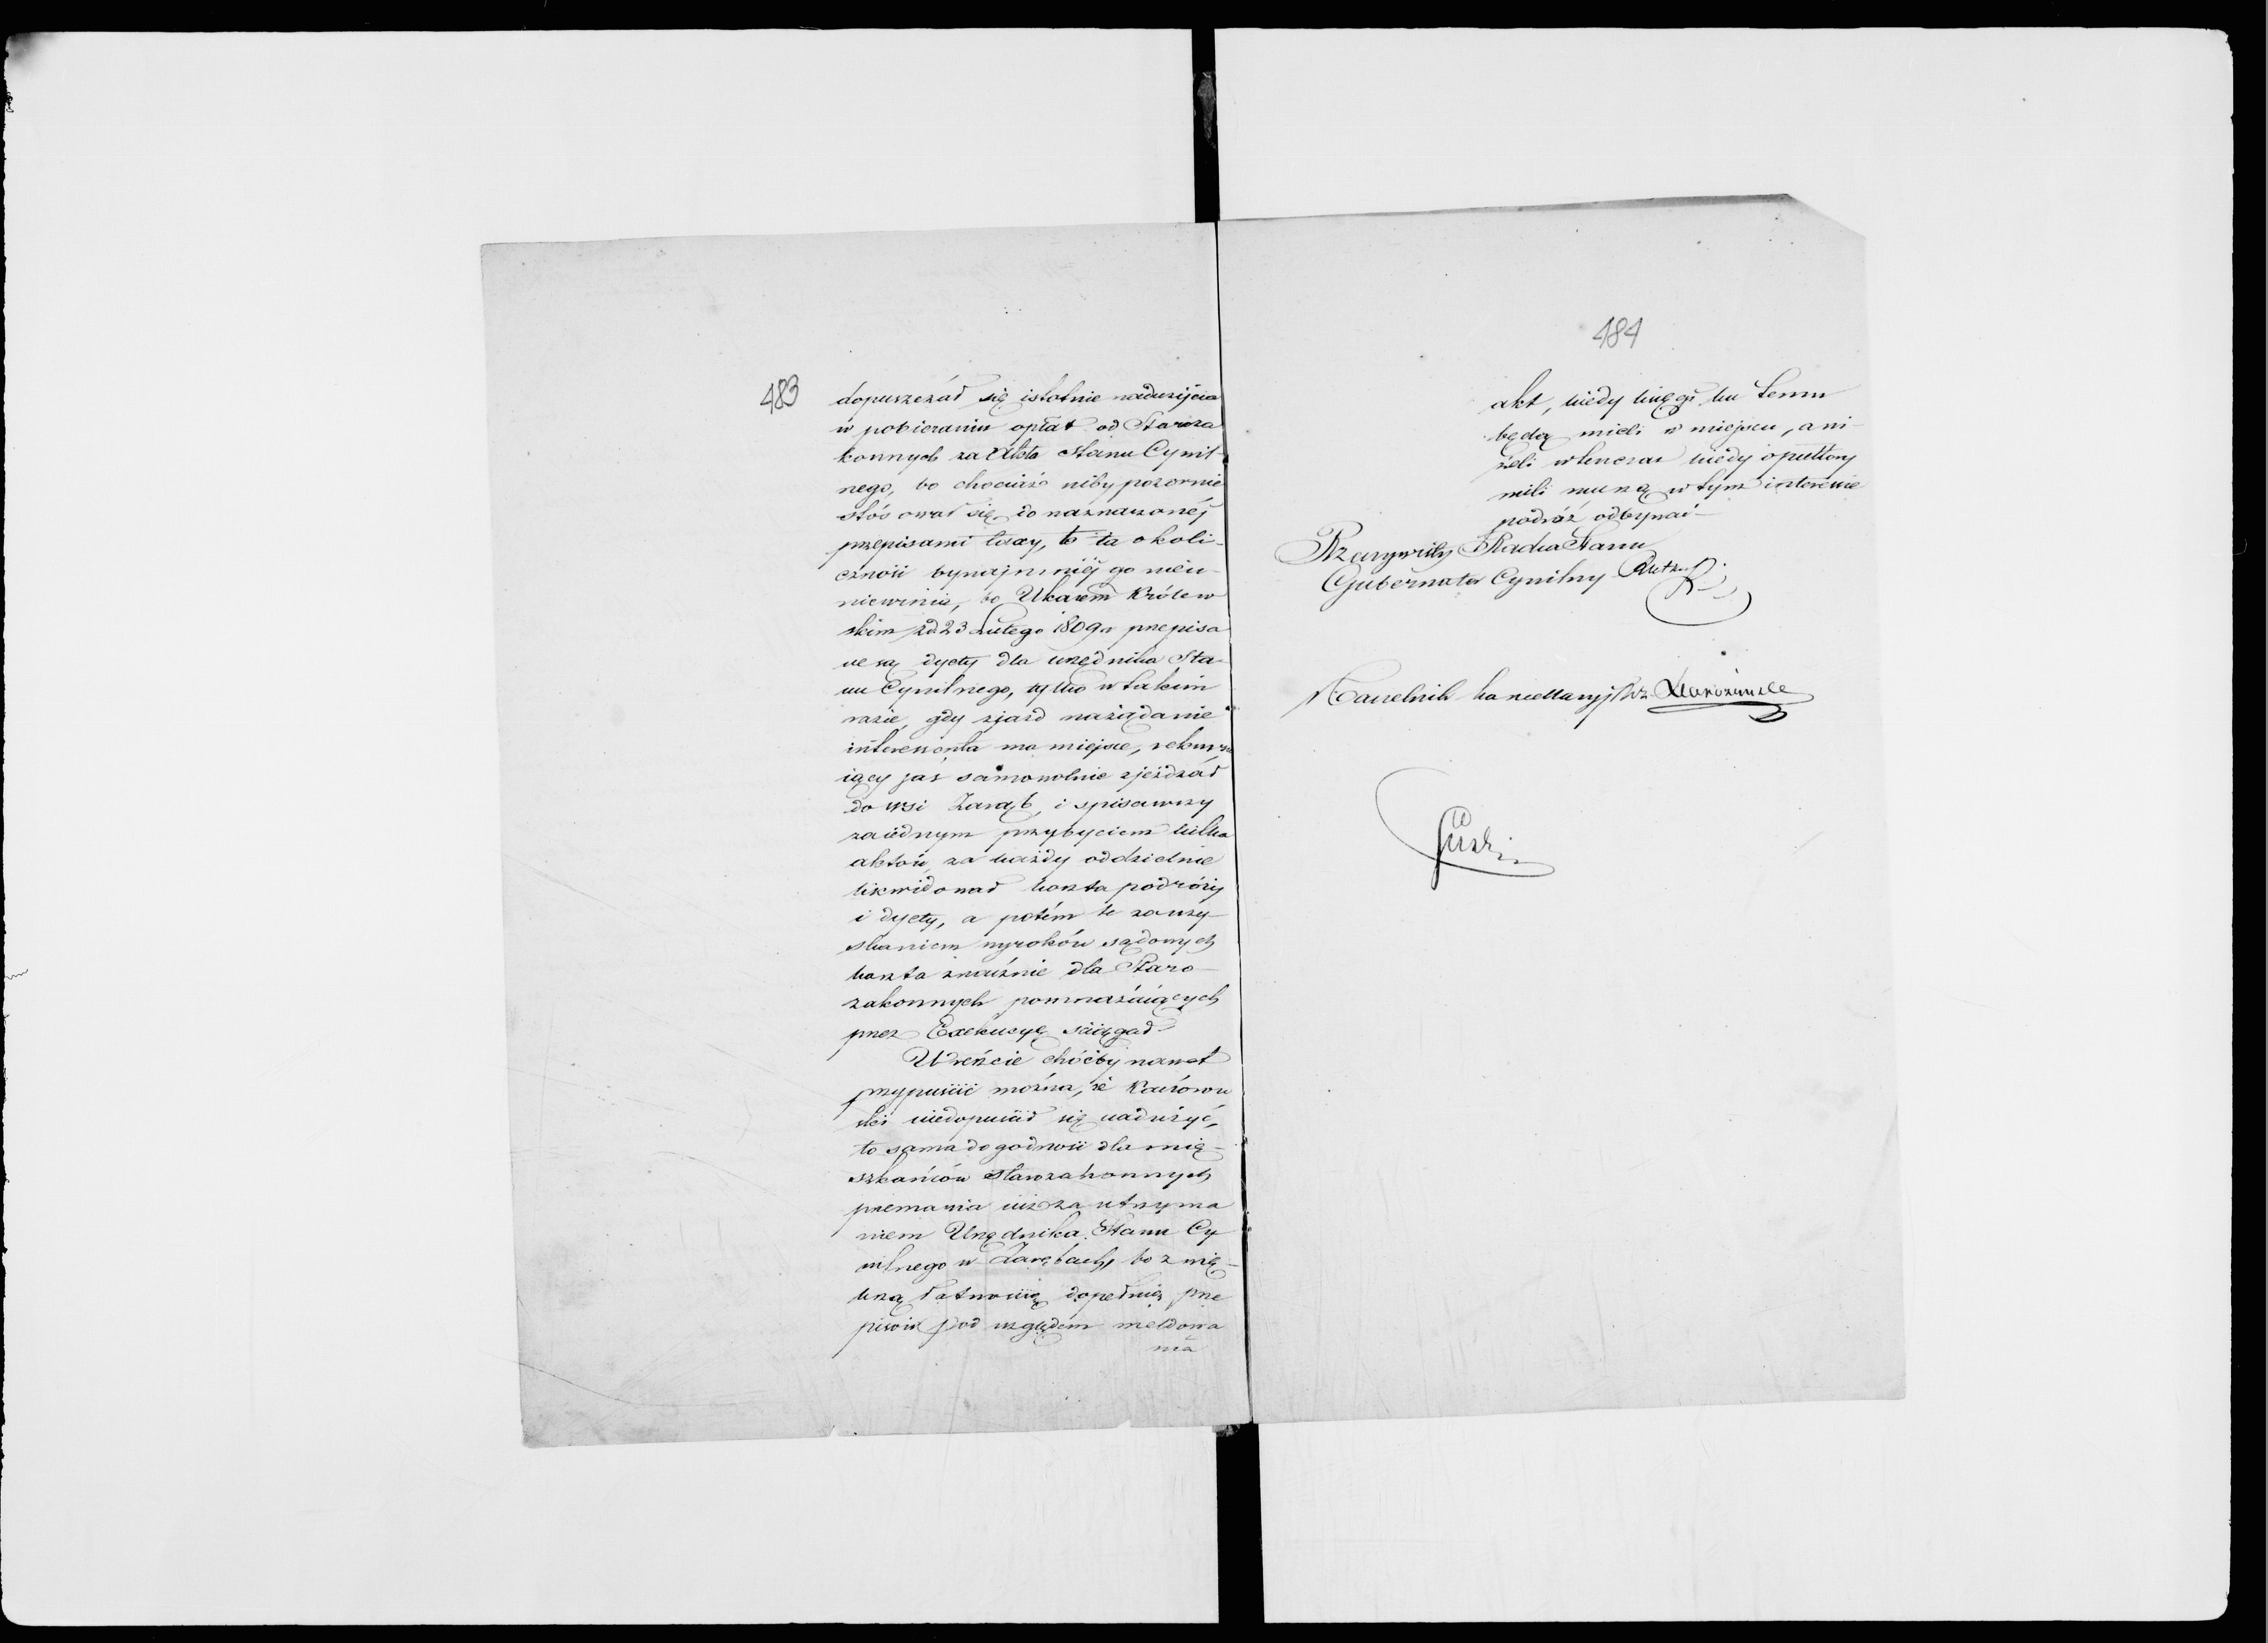 483
dopuszczał się istotnie nadużycia
w pobieraniu opłat od Staroza
konnych za Akta Stanu Cywil-
nego, bo chociaż niby pozornie
stósował się do naznaczonéj
przepisami taxy, to ta okoli-
czność bynajmniéj go nieu-
niewinia, bo Ukazem Królew
skim zd 23 Lutego 1809 r przepisa
ne są dyety dla urzędnika Sta-
nu Cywilnego, tylko w takim
razie, gdy zjazd na żądanie
interessenta ma miejsce,
iący zaś samowolnie zjeżdżał
do wsi Zaręb, i spisawszy
za iednym przybyciem kilka
aktów, za każdy oddzielnie
likwidował koszta podróży
i dyety, a potém te za uzy-
skaniem wyroków sądowych
koszta znacznie dla Staro-
zakonnych pomnażaiących
przez Exekucyę ściągał
Wreszcie chócby nawet
przypuścić można, że
ski niedopuścił się nadużyć,
to sama dogodność dla mie-
szkańców Starozakonnych
przemawia iuż za utrzyma
niem Urzędnika Stanu Cy
wilnego w Zarębach, bo z wię-
kszą łatwością dopełnią prze
pisów pod względem meldowa
nia
484
akt, kiedy księgi ku temu
będą mieli w miejscu, ani-
żeli wtenczas kiedy
mili muszą w tym interesie
podróż odbywać
Rzeczywisty Radca Stanu
Gubernator Cywilny
Naczelnik kancellaryi